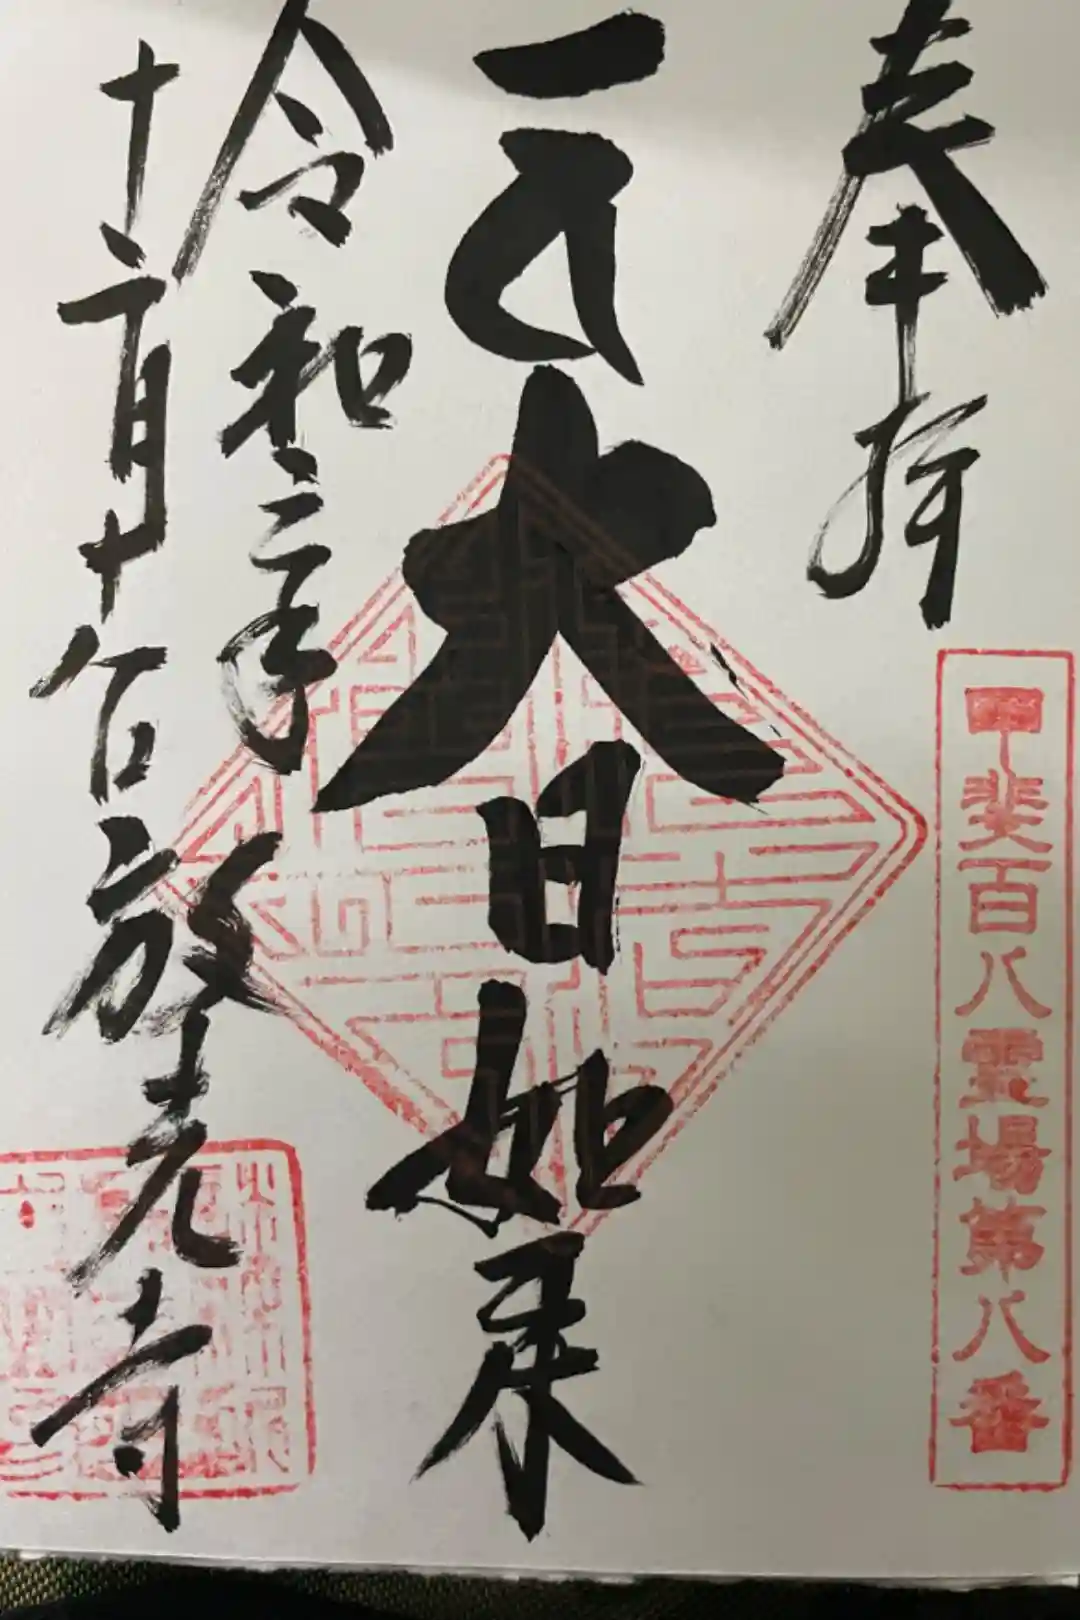 奉拝
甲斐百八霊場第八番
大日如来
令和二年
十二月十八日
放光寺